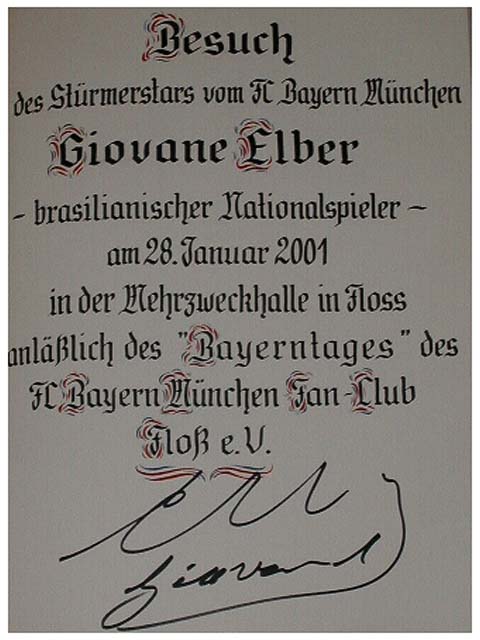 Besuch
des Stürmerstars vom FC Bayern München
Giovane Elber
- brasilianischer Nationalspieler -
am 28. Januar 2001
in der Mehrzweckhalle in Floss
anläßlich des "Bayerntages" des
FC Bayern München Fan-Club
Floß e.V.
Elber
Giovane